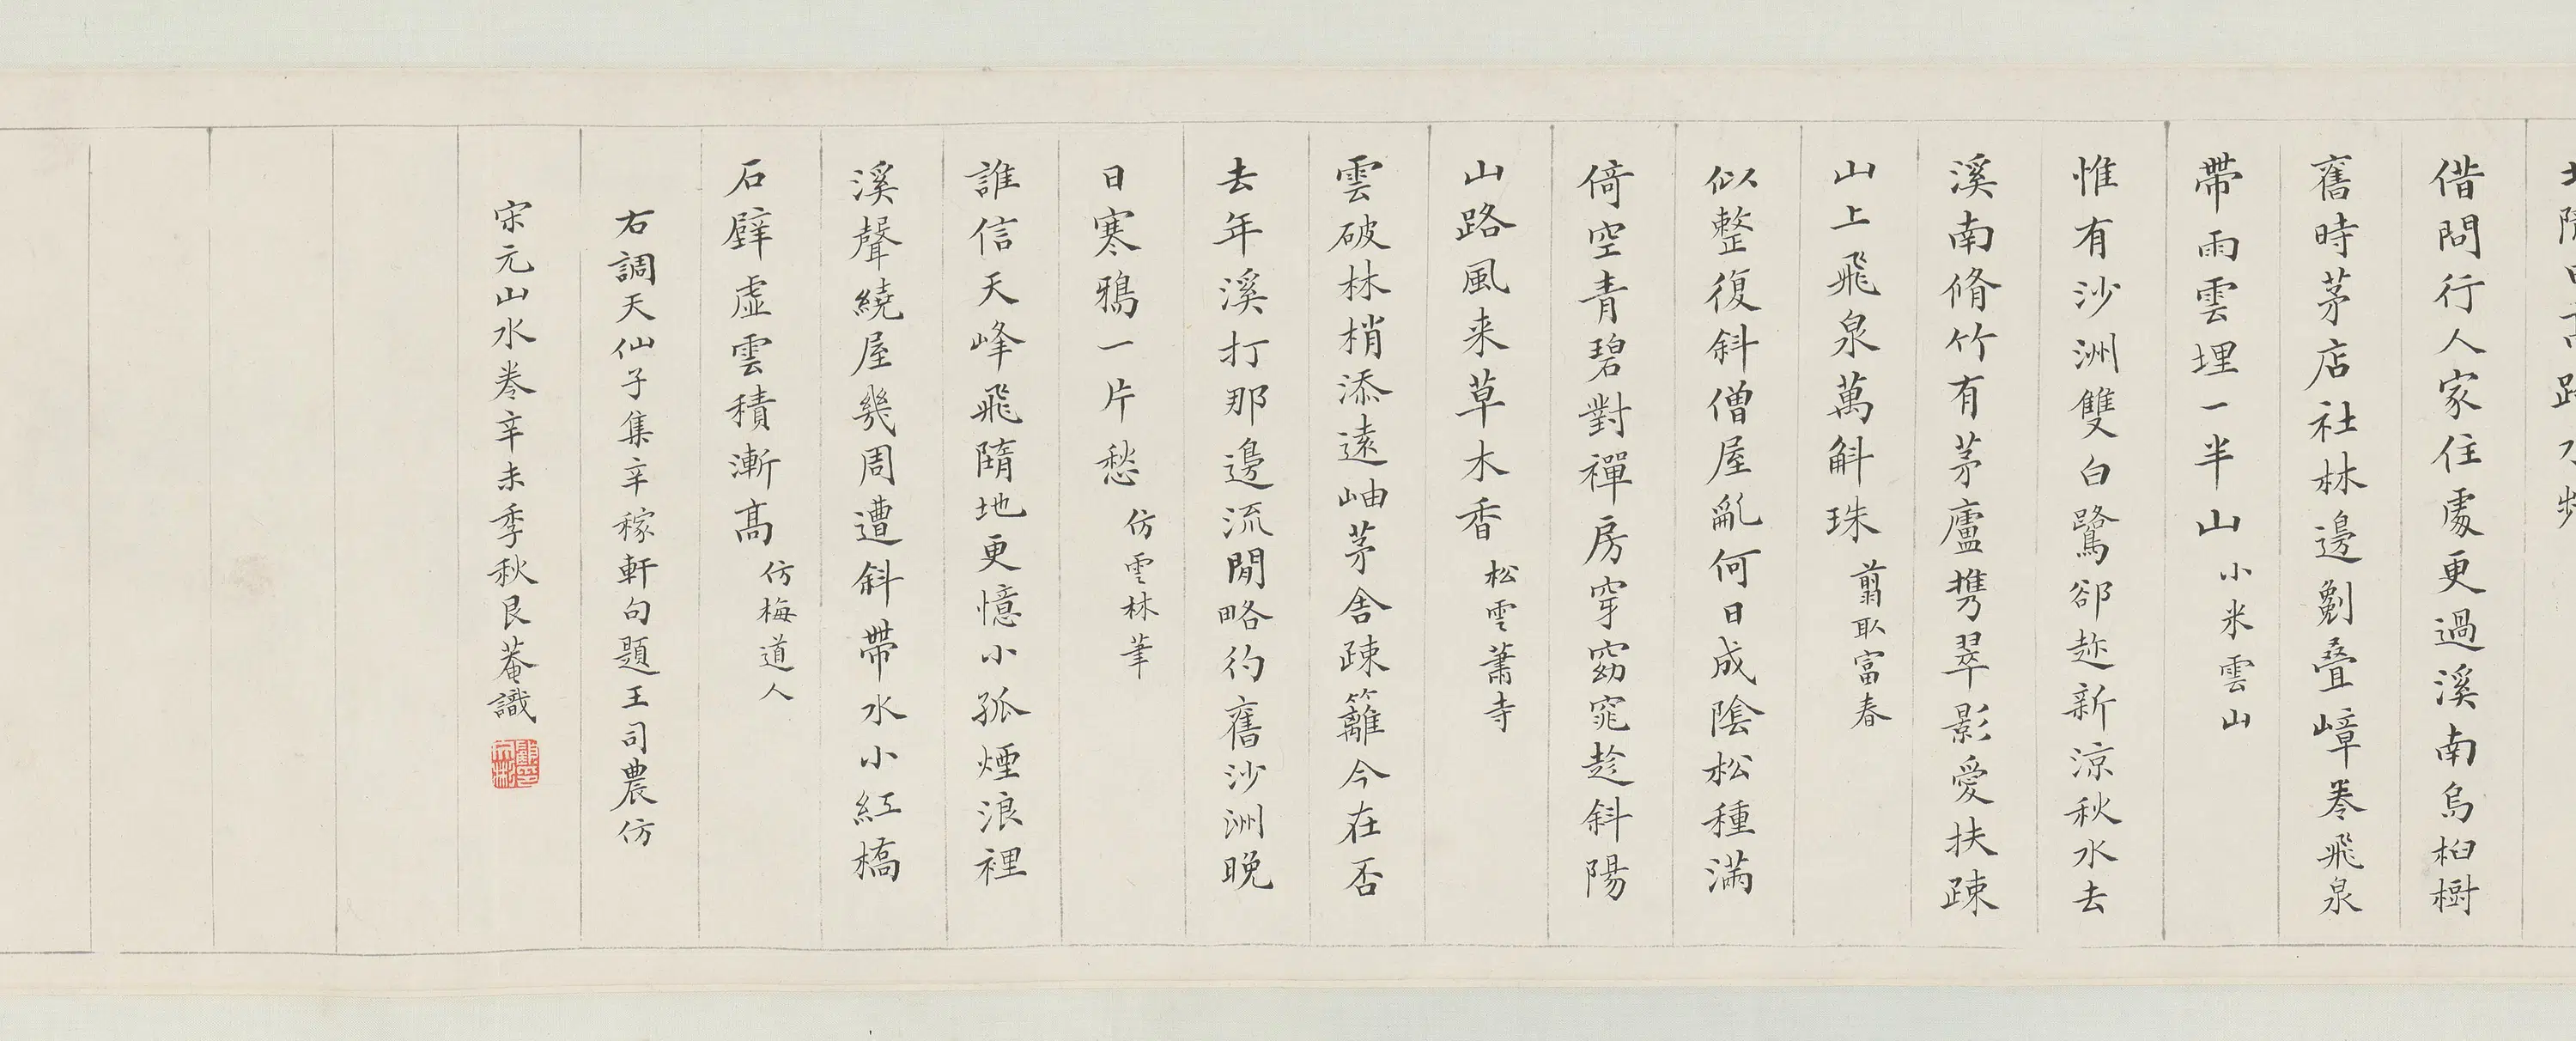 借問行人家住處更過溪南烏桕樹
舊時茅店社林邊劖疊嶂卷飛泉
帶雨雲埋一半山 小米雲山
惟有沙洲雙白鷺郤趂新涼秋水去
溪南脩竹有茅廬攜翠影愛扶疎
山上飛泉萬斛珠 翦取富春
似整復斜僧屋亂何日成陰松種滿
倚空青碧對禪房穿窈窕趁斜陽
山路風来草木香 松雪蕭寺
雲破林梢添遠岫茅舍疎籬今在否
去年溪打那邊流閒略彴舊沙洲晚
日寒鴉一片愁 仿雲林筆
誰信天峰飛隨地更憶小孤煙浪裡
溪聲繞屋幾周遭斜帶水小紅橋
石壁虛雲積漸高 仿梅道人
右調天仙子集辛稼軒句題王司農仿
宋元山水卷辛未季秋艮菴識